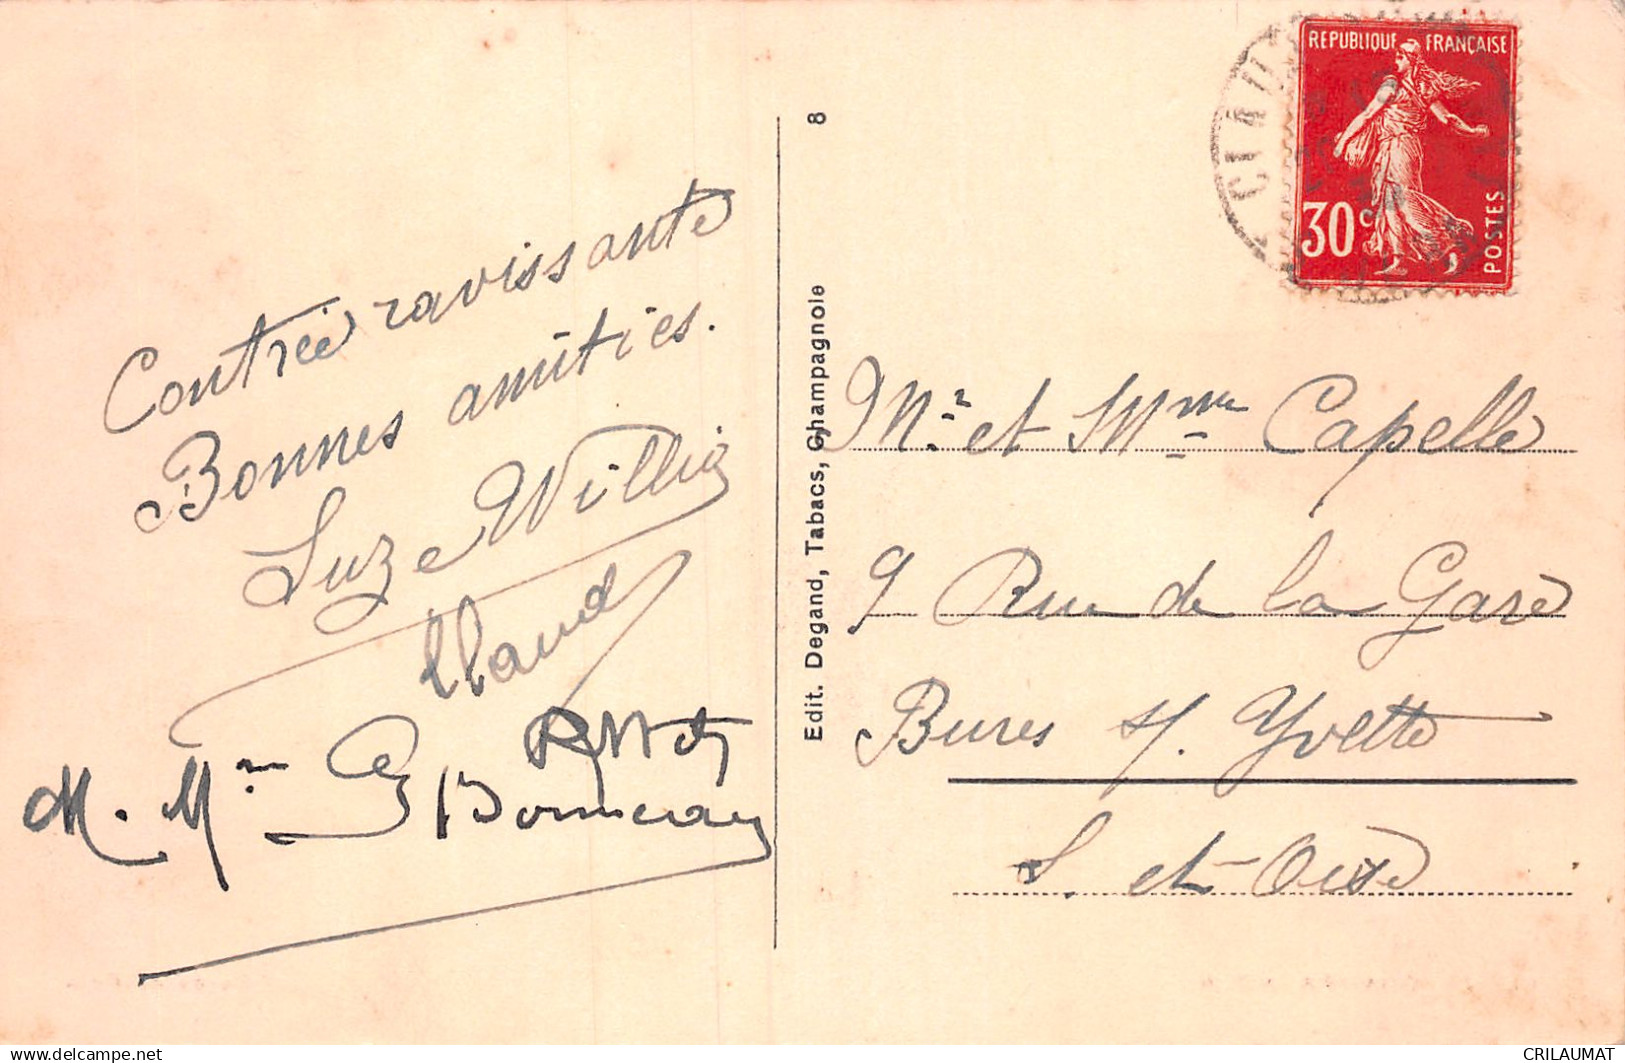 Contrée ravissante
Bonnes amitiés.
Suze Willig
Claude
M. Mme
8
Edit. Degand, Tabacs, Champagnole
REPUBLIQUE FRANÇAISE
30c
POSTES
Mr et Mme Capelle
9 Rue de la Gare
Bures s/ Yvette
S. et Oise
www.delcampe.net
CRILAUMAT